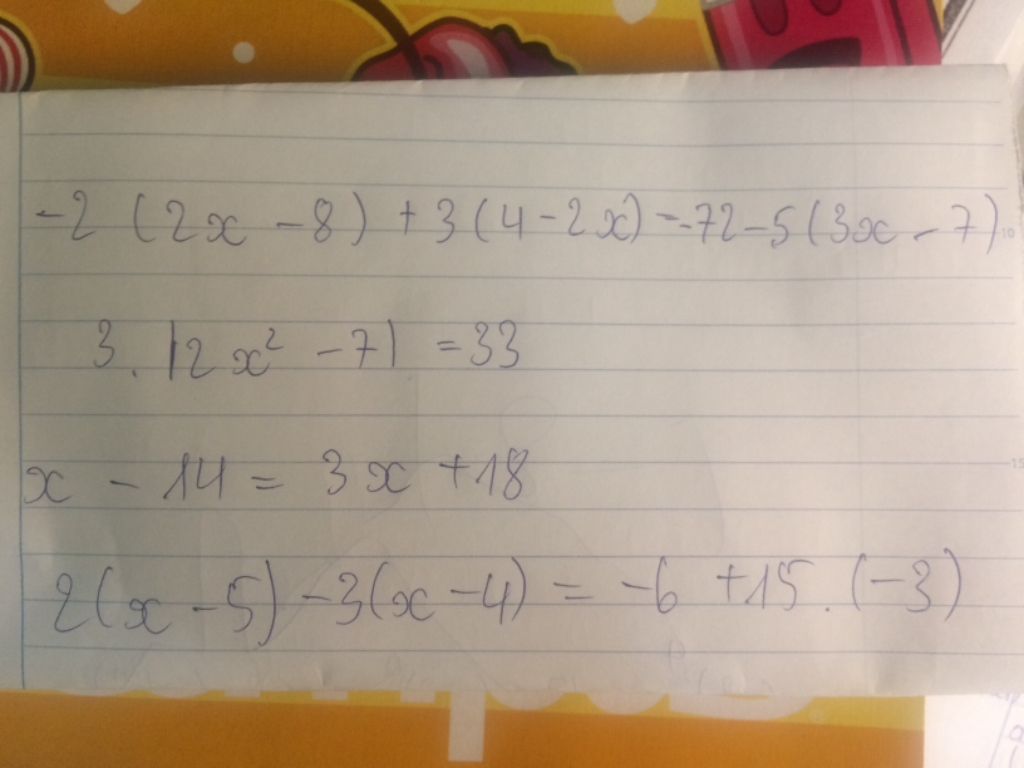 -2 (2x - 8) + 3(4 - 2x) = -72 - 5(3x - 7)
3 . |2x² - 7| = 33
x - 14 = 3x + 18
2(x - 5) - 3(x - 4) = -6 + 15 . (-3)